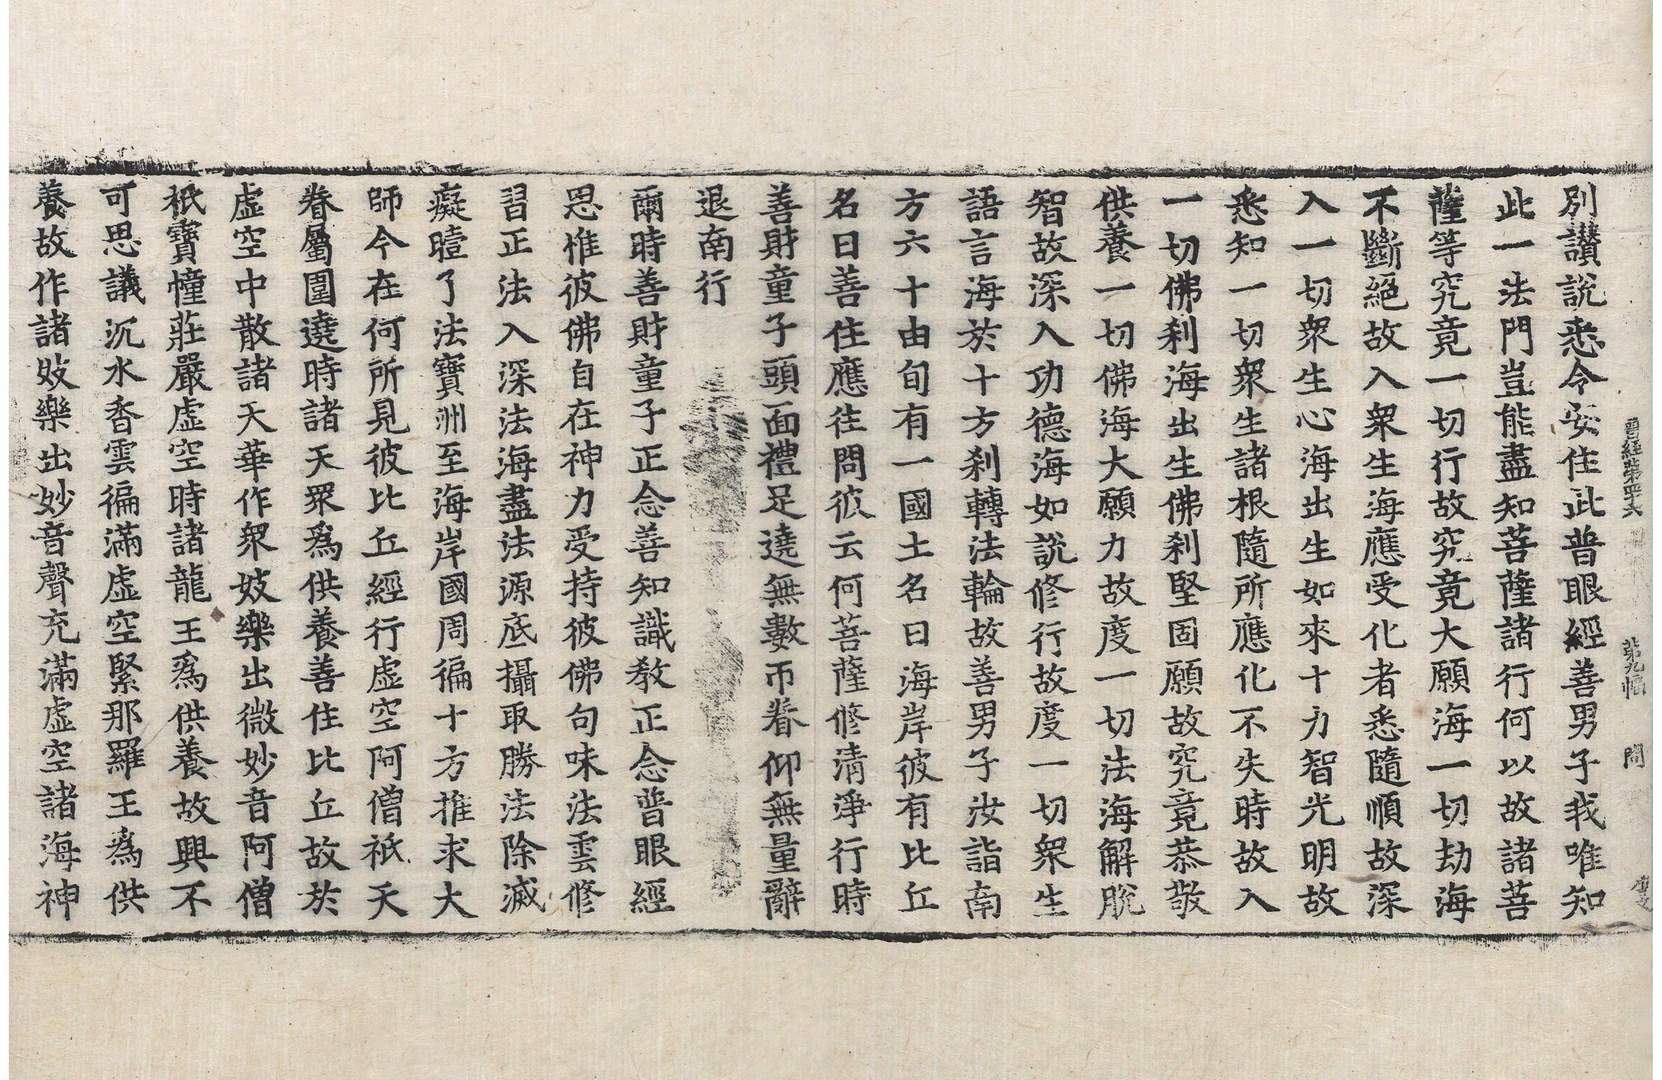 晋經第四十六 第九幅 問
別讃說悉令安住此普眼經善男子我唯知
此一法門豈能盡知菩薩諸行何以故諸菩
薩等究竟一切行故究竟大願海一切劫海
不斷絕故入衆生海應受化者悉隨順故深
入一切衆生心海出生如來十力智光明故
悉知一切衆生諸根隨所應化不失時故入
一切佛刹海出生佛刹堅固願故究竟恭敬
供養一切佛海大願力故度一切法海解脫
智故深入功德海如說修行故度一切衆生
語言海於十方刹轉法輪故善男子汝詣南
方六十由旬有一國土名曰海岸彼有比丘
名曰善住應往問彼云何菩薩修清淨行時
善財童子頭面禮足遶無數帀眷仰無量辭
退南行
爾時善財童子正念善知識教正念普眼經
思惟彼佛自在神力受持彼佛句味法雲修
習正法入深法海盡法源底攝取勝法除滅
癡曀了法寶洲至海岸國周徧十方推求大
師今在何所見彼比丘經行虛空阿僧祇天
眷屬圍遶時諸天衆爲供養善住比丘故於
虛空中散諸天華作衆妓樂出微妙音阿僧
祇寶幢莊嚴虛空時諸龍王爲供養故興不
可思議沉水香雲徧滿虛空緊那羅王爲供
養故作諸妓樂出妙音聲充滿虛空諸海神